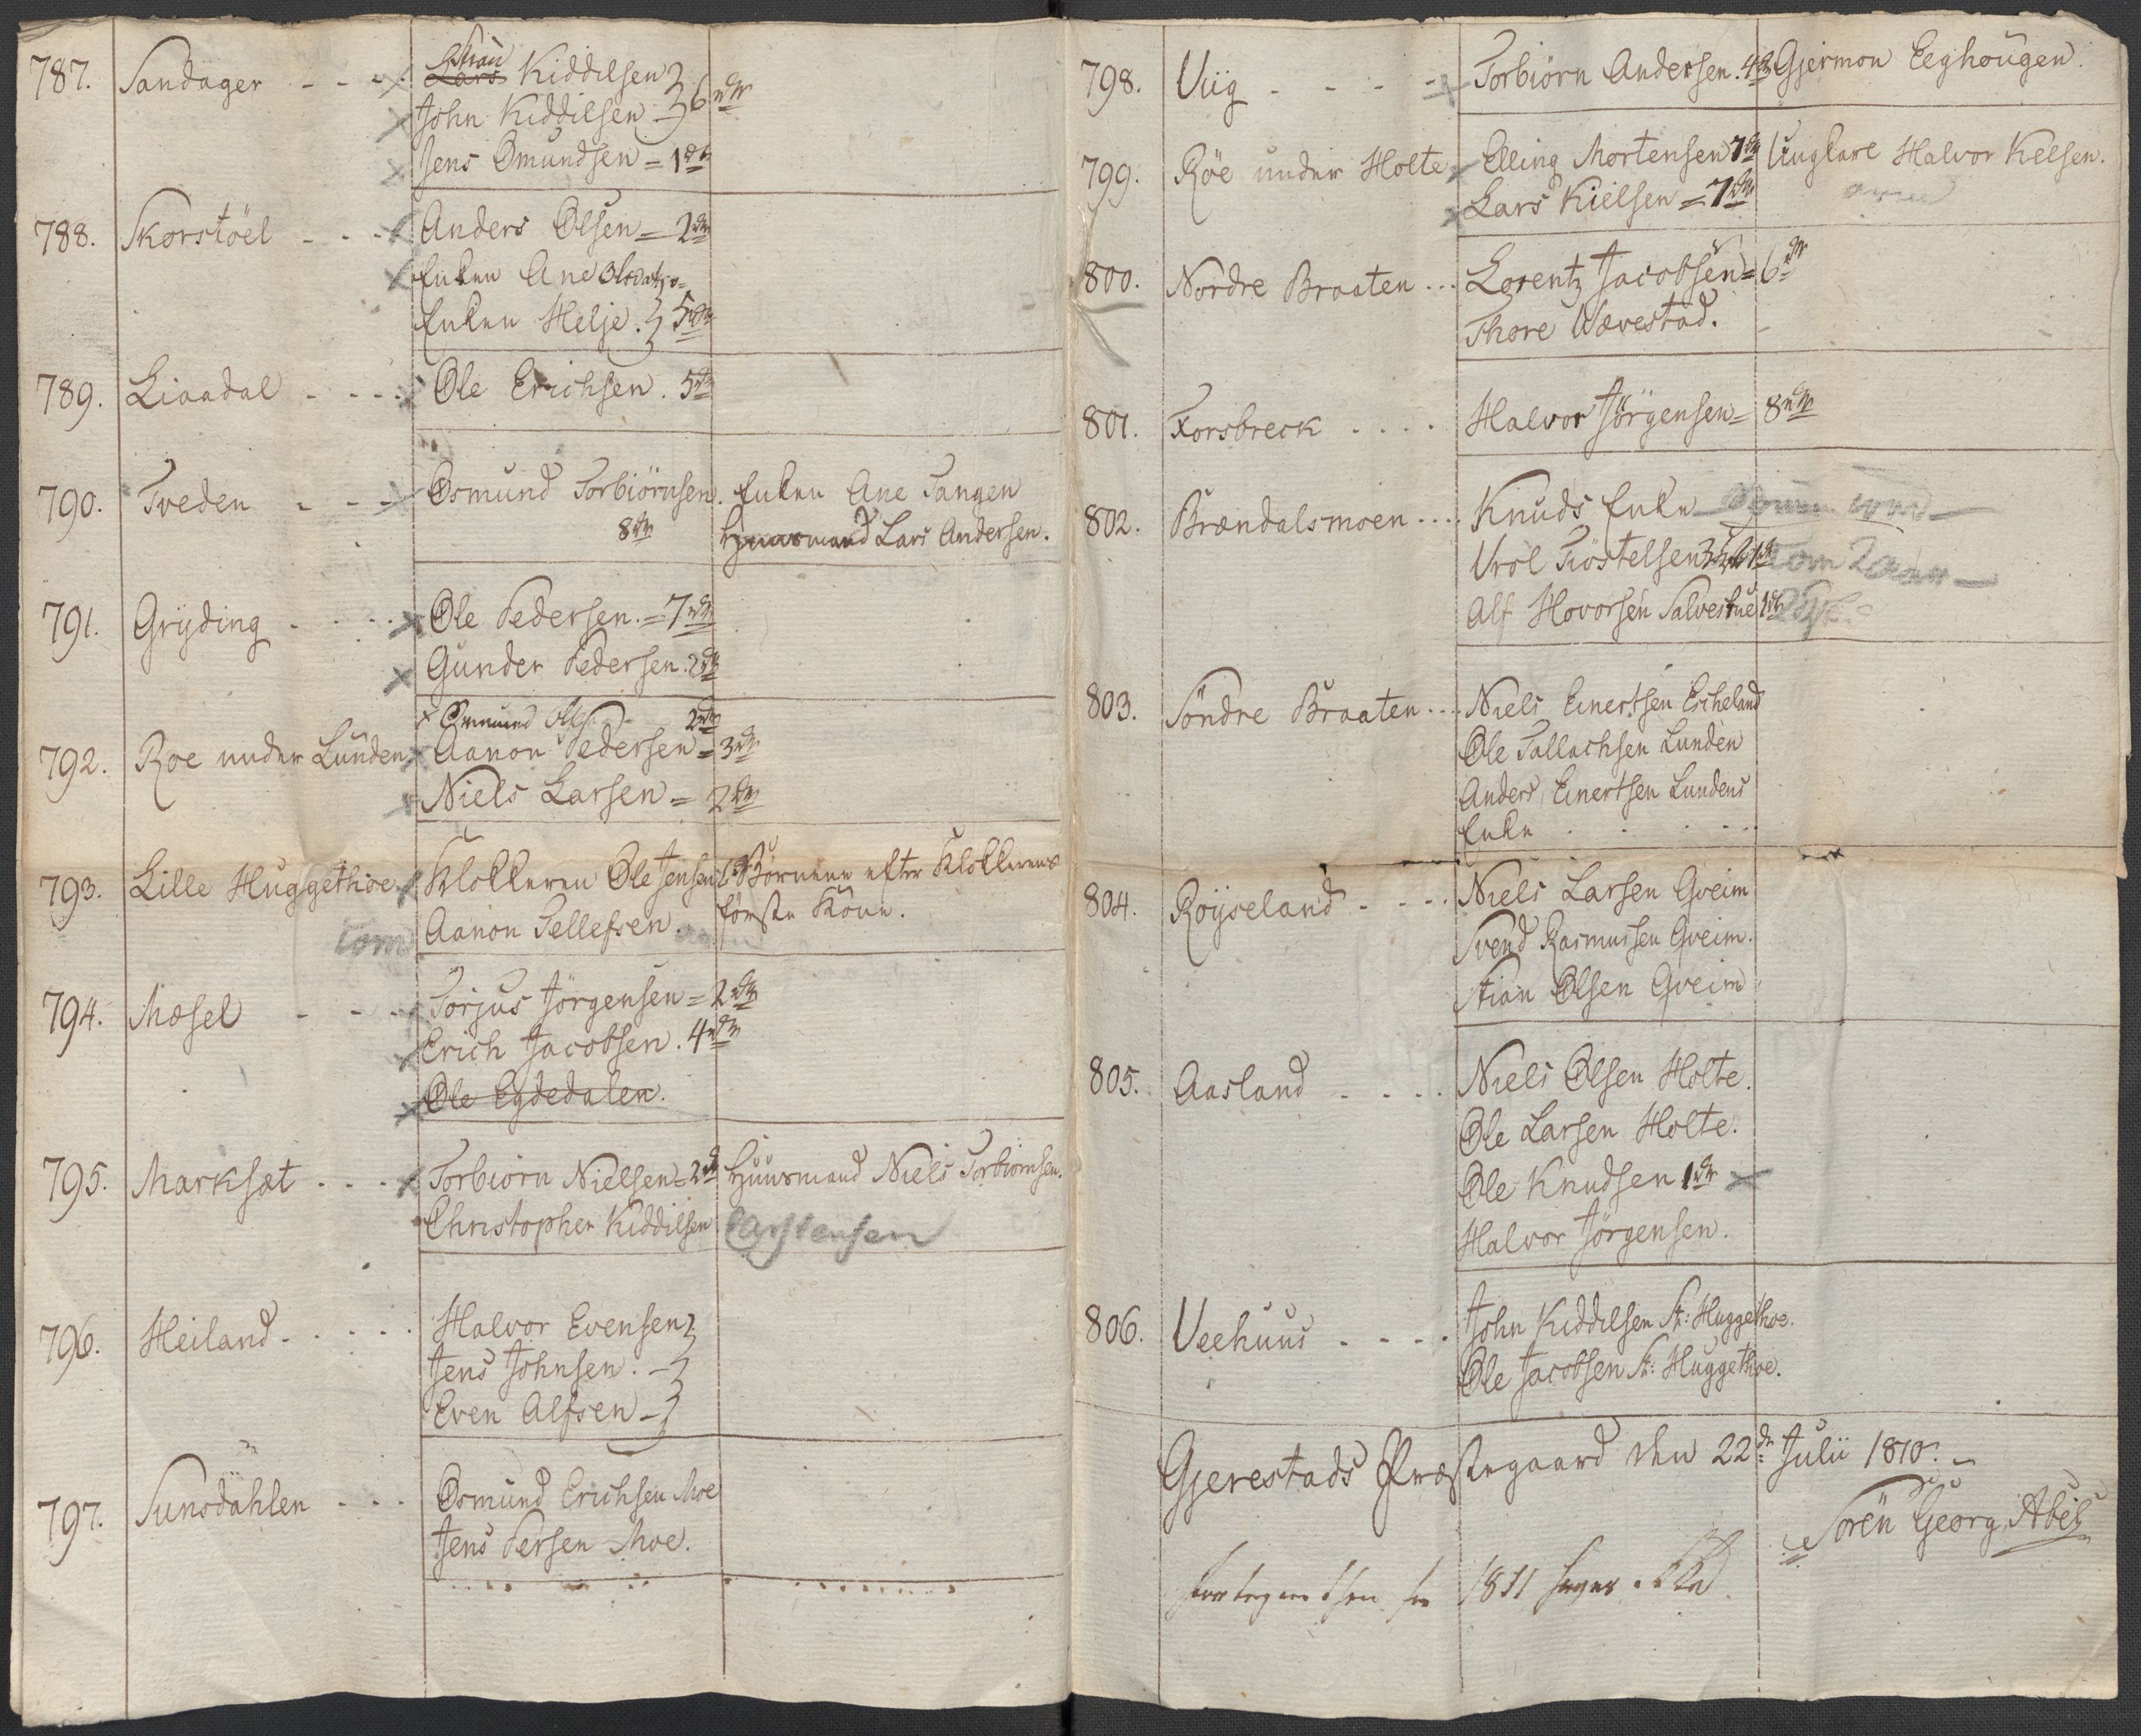 787. Sandager - - - Stian Lars Kiddelsen } 6 rdr
John Kiddilsen
Jens Omundsen = 1 dr
788. Skorstöel - - - Anders Olsen = 2 dr
Enken Ane
Enken Helje. } 5 rdr
789. Liaadal - - - Ole Erichsen. 5 dr
790. Tveden - - - Osmund Torbiörnsen. Enken Ane Tangen
8 dr Huusmand Lars Andersen.
791. Gryding - - - Ole Pedersen. = 7 rdr
Gunder Pedersen. 2 dr
Osmund Olsen 2 rdr
792. Roe under Lunden Aanon Pedersen = 3 rdr
Niels Larsen = 2 dr
793. Lille Huggethoe Klokkeren Ole Jensen Börnene efter Klokkerens
tom Aanon Tellefsen. förste Köne.
794. Mosel - - - Torjus Jörgensen = 2 dr
Erich Jacobsen. 4 rdr
Ole Egdedalen.
795. Marksæt . . . Torbiörn Nielsen = 2 d Huusmand Niels Torbiornsen.
Christopher Kiddilsen Carstensen
796. Heiland - . . . Halvor Evensen }
Jens Johnsen. - }
Even Alfsen - }
797. Sunsdahlen - - - Osmund Erichsen Moe
Jens Persen Moe.
798. Viig - - - - Torbiörn Andersen. 4 dr Gjermon Eeghougen.
799. Röe under Holte Elling Mortensen 7 dr Ungkare Halvor Kelsen.
Lars Kielsen = 7 dr
800. Nordre Braaten . . . Lorentz Jacobsen = 6 dr
Thore Wævestad.
801. Forsbreck . . . . Halvor Jörgensen = 8 rdr
802. Brændalsmoen . . . . Knuds Enke
Vrol Tiöstelsen
Alf Hovorsen Salvestue 1 dr
803. Söndre Braaten . . . Niels Einertsen Eicheland
Ole Tallachsen Lunden
Anders Einertsen Lundens
Enke . . . . .
804. Röyseland - - - . Niels Larsen Gveim
Svend Rasmussen Gveim.
Stian Olsen Gveim
805. Aasland - . . . Niels Olsen Holte.
Ole Larsen Holte.
Ole Knudsen 1 dr
Halvor Jörgensen.
806. Veehuus - - - . John Kiddelsen St: Huggethoe.
Ole Jacobsen St: Huggethoe.
Gjerestads Præstegaard den 22de Julii 1810.
Sören Georg Abel
1811